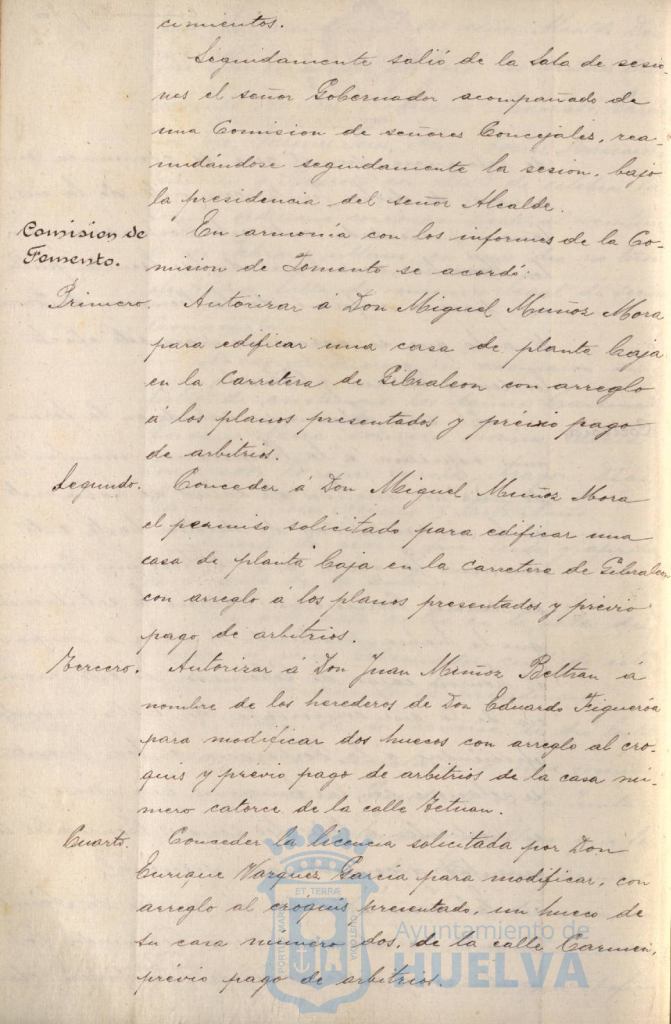 cimientos.
Seguidamente salió de la Sala de sesio-
nes el señor Gobernador acompañado de
una Comision de señores Concejales, rea-
nudándose seguidamente la sesion, bajo
la presidencia del señor Alcalde.
Comision de
Fomento.
En armonía con los informes de la Co-
mision de Fomento se acordó:
Primero. Autorizar á Don Miguel Muñoz Mora
para edificar una casa de planta baja
en la Carretera de Gibraleon con arreglo
á los planos presentados y prévio pago
de arbitrios.
Segundo. Conceder á Don Miguel Muñoz Mora
el permiso solicitado para edificar una
casa de planta baja en la Carretera de Gibraleon
con arreglo á los planos presentados y prévio
pago de arbitrios.
Tercero. Autorizar á Don Juan Muñoz Beltran á
nombre de los herederos de Don Eduardo Figueróa
para modificar dos huecos con arreglo al cro-
quis y prévio pago de arbitrios de la casa nú-
mero catorce de la calle Tetuan.
Cuarto. Conceder la licencia solicitada por Don
Enrique Vazquez García para modificar, con
arreglo al croquis presentado, un hueco de
su casa número dos, de la calle Carmen,
prévio pago de arbitrios.
PORTUS MARIS ET TERRÆ CUSTODIA
Ayuntamiento de
HUELVA